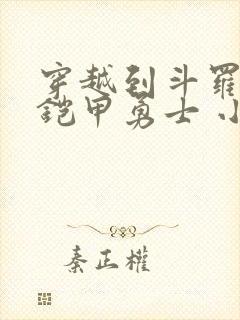 穿越到斗羅
鎧甲勇士 小
秦正權